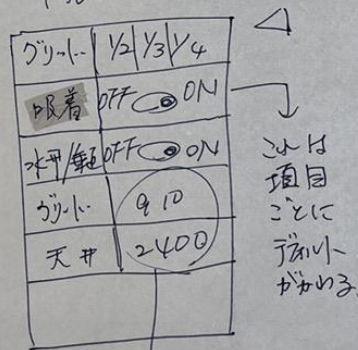 グリッド 1/2 1/3 1/4
吸着 OFF ON
水平/垂直 OFF ON
グリッド 910
天井 2400
これは
項目
ごとに
デフォルト
がかわる